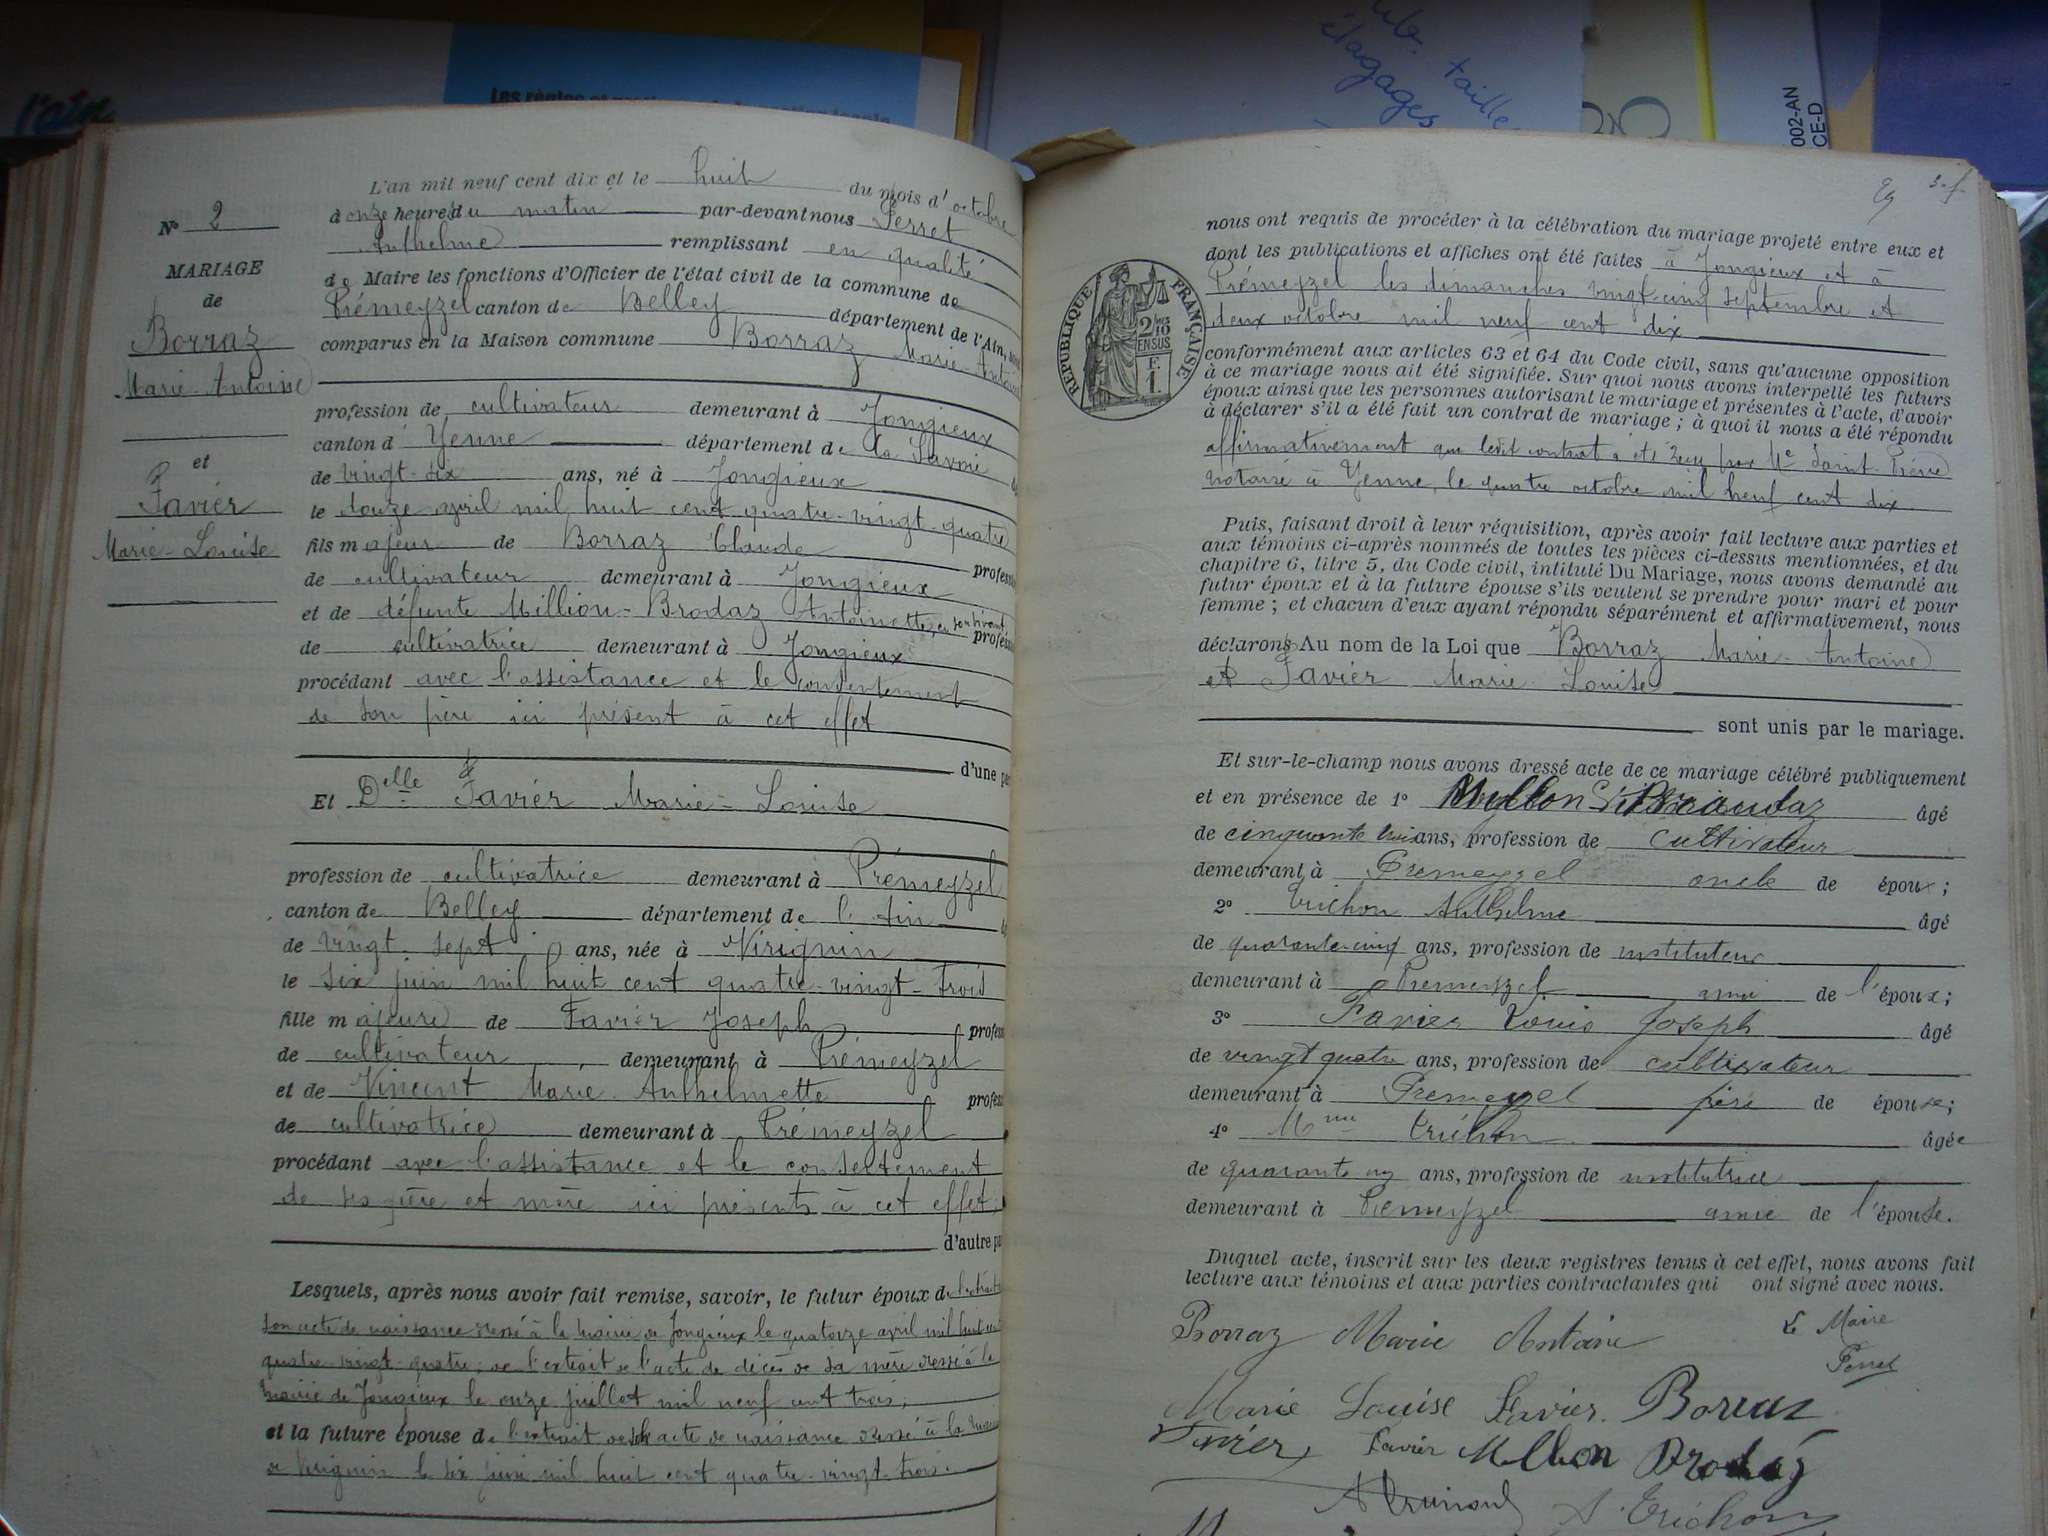 l'ain
ub. taille
élagages
002-AN
CE-D
N° 2
MARIAGE
de
Borraz
Marie-Antoine
et
Favier
Marie-Louise
L'an mil neuf cent dix et le huit du mois d'octobre
à onze heures du matin par-devant nous Perret
Anthelme remplissant en qualité
de Maire les fonctions d'Officier de l'état civil de la commune de
Prémeyzel canton de Belley département de l'Ain,
comparus en la Maison commune Borraz Marie-Antoine
profession de cultivateur demeurant à Jongieux
canton d' Yenne département de la Savoie
de vingt-six ans, né à Jongieux
le douze avril mil huit cent quatre-vingt-quatre
fils majeur de Borraz Claude profess
de cultivateur demeurant à Jongieux
et de défunte Million-Brodaz Antoinette, en son vivant profess
de cultivatrice demeurant à Jongieux
procédant avec l'assistance et le consentement
de son père ici présent à cet effet
d'une pa
Et Delle Favier Marie-Louise
profession de cultivatrice demeurant à Prémeyzel
canton de Belley département de l'Ain
de vingt-sept ans, née à Virignin
le six juin mil huit cent quatre-vingt-trois
fille majeure de Favier Joseph profess
de cultivateur demeurant à Prémeyzel
et de Vincent Marie-Anthelmette profess
de cultivatrice demeurant à Prémeyzel
procédant avec l'assistance et le consentement
de ses père et mère ici présents à cet effet.
d'autre pa
Lesquels, après nous avoir fait remise, savoir, le futur époux de l'extrait
son acte de naissance dressé à la mairie de Jongieux le quatorze avril mil huit cent
quatre-vingt-quatre; de l'extrait de l'acte de décès de sa mère dressé à la
mairie de Jongieux le onze juillet mil neuf cent trois;
et la future épouse de l'extrait de son acte de naissance dressé à la mairie
de Virignin le six juin mil huit cent quatre-vingt-trois.
nous ont requis de procéder à la célébration du mariage projeté entre eux et
dont les publications et affiches ont été faites à Jongieux et à
Prémeyzel les dimanches vingt-cinq septembre et
deux octobre mil neuf cent dix
RÉPUBLIQUE FRANÇAISE
2/10
EN SUS
E
1
conformément aux articles 63 et 64 du Code civil, sans qu'aucune opposition
à ce mariage nous ait été signifiée. Sur quoi nous avons interpellé les futurs
époux ainsi que les personnes autorisant le mariage et présentes à l'acte, d'avoir
à déclarer s'il a été fait un contrat de mariage; à quoi il nous a été répondu
affirmativement que ledit contrat a été reçu par Me Saint-Pierre
notaire à Yenne, le quatre octobre mil neuf cent dix.
Puis, faisant droit à leur réquisition, après avoir fait lecture aux parties et
aux témoins ci-après nommés de toutes les pièces ci-dessus mentionnées, et du
chapitre 6, titre 5, du Code civil, intitulé Du Mariage, nous avons demandé au
futur époux et à la future épouse s'ils veulent se prendre pour mari et pour
femme; et chacun d'eux ayant répondu séparément et affirmativement, nous
déclarons Au nom de la Loi que Borraz Marie-Antoine
et Favier Marie-Louise
sont unis par le mariage.
Et sur-le-champ nous avons dressé acte de ce mariage célébré publiquement
et en présence de 1° âgé
de cinquante trois ans, profession de cultivateur
demeurant à Prémeyzel oncle de époux;
2° Trichon Anthelme âgé
de quarante-cinq ans, profession de instituteur
demeurant à Prémeyzel ami de l'époux;
3° Favier Louis Joseph âgé
de vingt quatre ans, profession de cultivateur
demeurant à Prémeyzel frère de épouse;
4° Mme Trichon âgée
de quarante ans, profession de institutrice
demeurant à Prémeyzel amie de l'épouse.
Duquel acte, inscrit sur les deux registres tenus à cet effet, nous avons fait
lecture aux témoins et aux parties contractantes qui ont signé avec nous.
Borraz Marie Antoine Le Maire
Perret
Marie Louise Favier. Borraz
Favier Favier Million Brodaz
A. Trichon